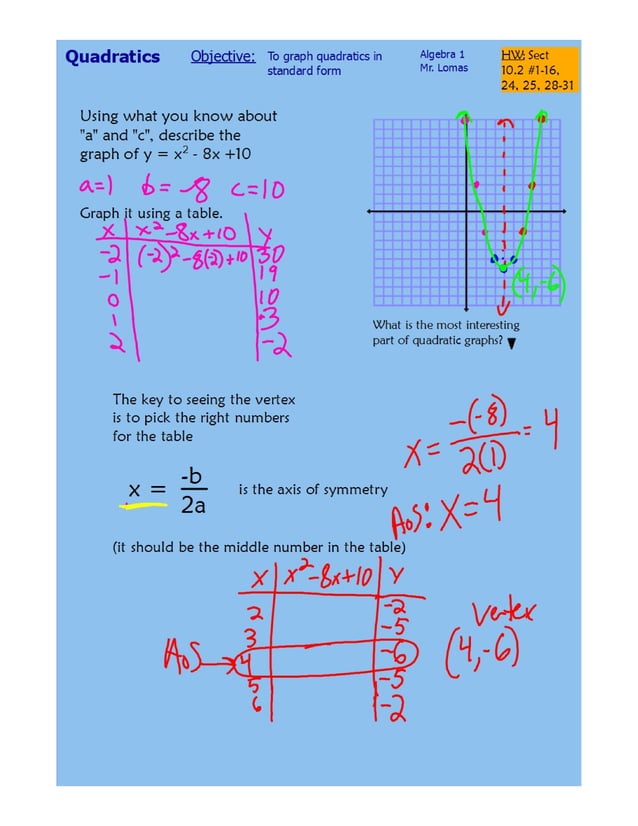 Quadratics
Objective:
To graph quadratics in
standard form
Algebra 1
Mr. Lomas
HW: Sect
10.2 #1-16,
24, 25, 28-31
Using what you know about
"a" and "c", describe the
graph of y = x² - 8x +10
a=1 b=-8 c=10
Graph it using a table.
x x²-8x+10 y
-2 (-2)²-8(-2)+10 30
-1 19
0 10
1 3
2 -2
(4,-6)
What is the most interesting
part of quadratic graphs?
The key to seeing the vertex
is to pick the right numbers
for the table
x = -(-8)/2(1) = 4
x = -b/2a is the axis of symmetry
AoS: x=4
(it should be the middle number in the table)
x x²-8x+10 y
2 -2
3 -5
AoS 4 -6
5 -5
6 -2
vertex
(4,-6)